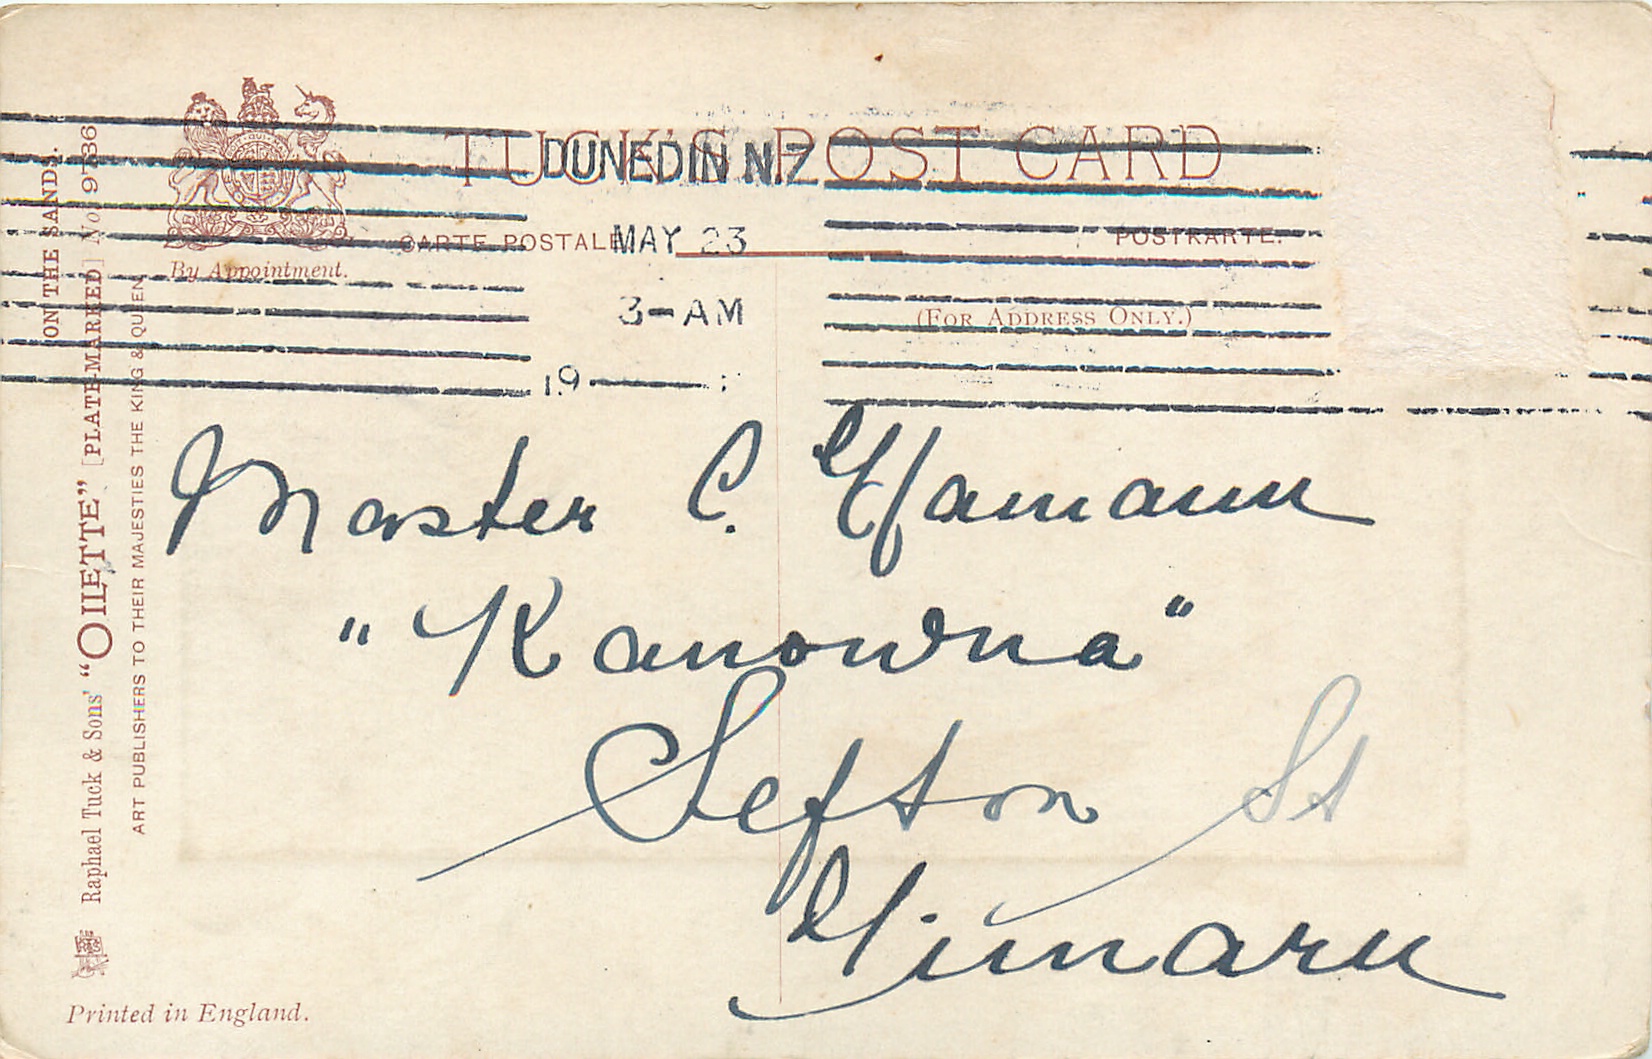 TUCK'S POST CARD
DUNEDIN N.Z
CARTE POSTALE
MAY 23
POSTKARTE.
By Appointment.
3-AM
(FOR ADDRESS ONLY.)
19
Master C. Hamann
"Kanowna"
Sefton St
Timaru
ON THE SANDS.
Raphael Tuck & Sons' "OILETTE" [PLATE-MARKED] No 9786
ART PUBLISHERS TO THEIR MAJESTIES THE KING & QUEEN.
Printed in England.